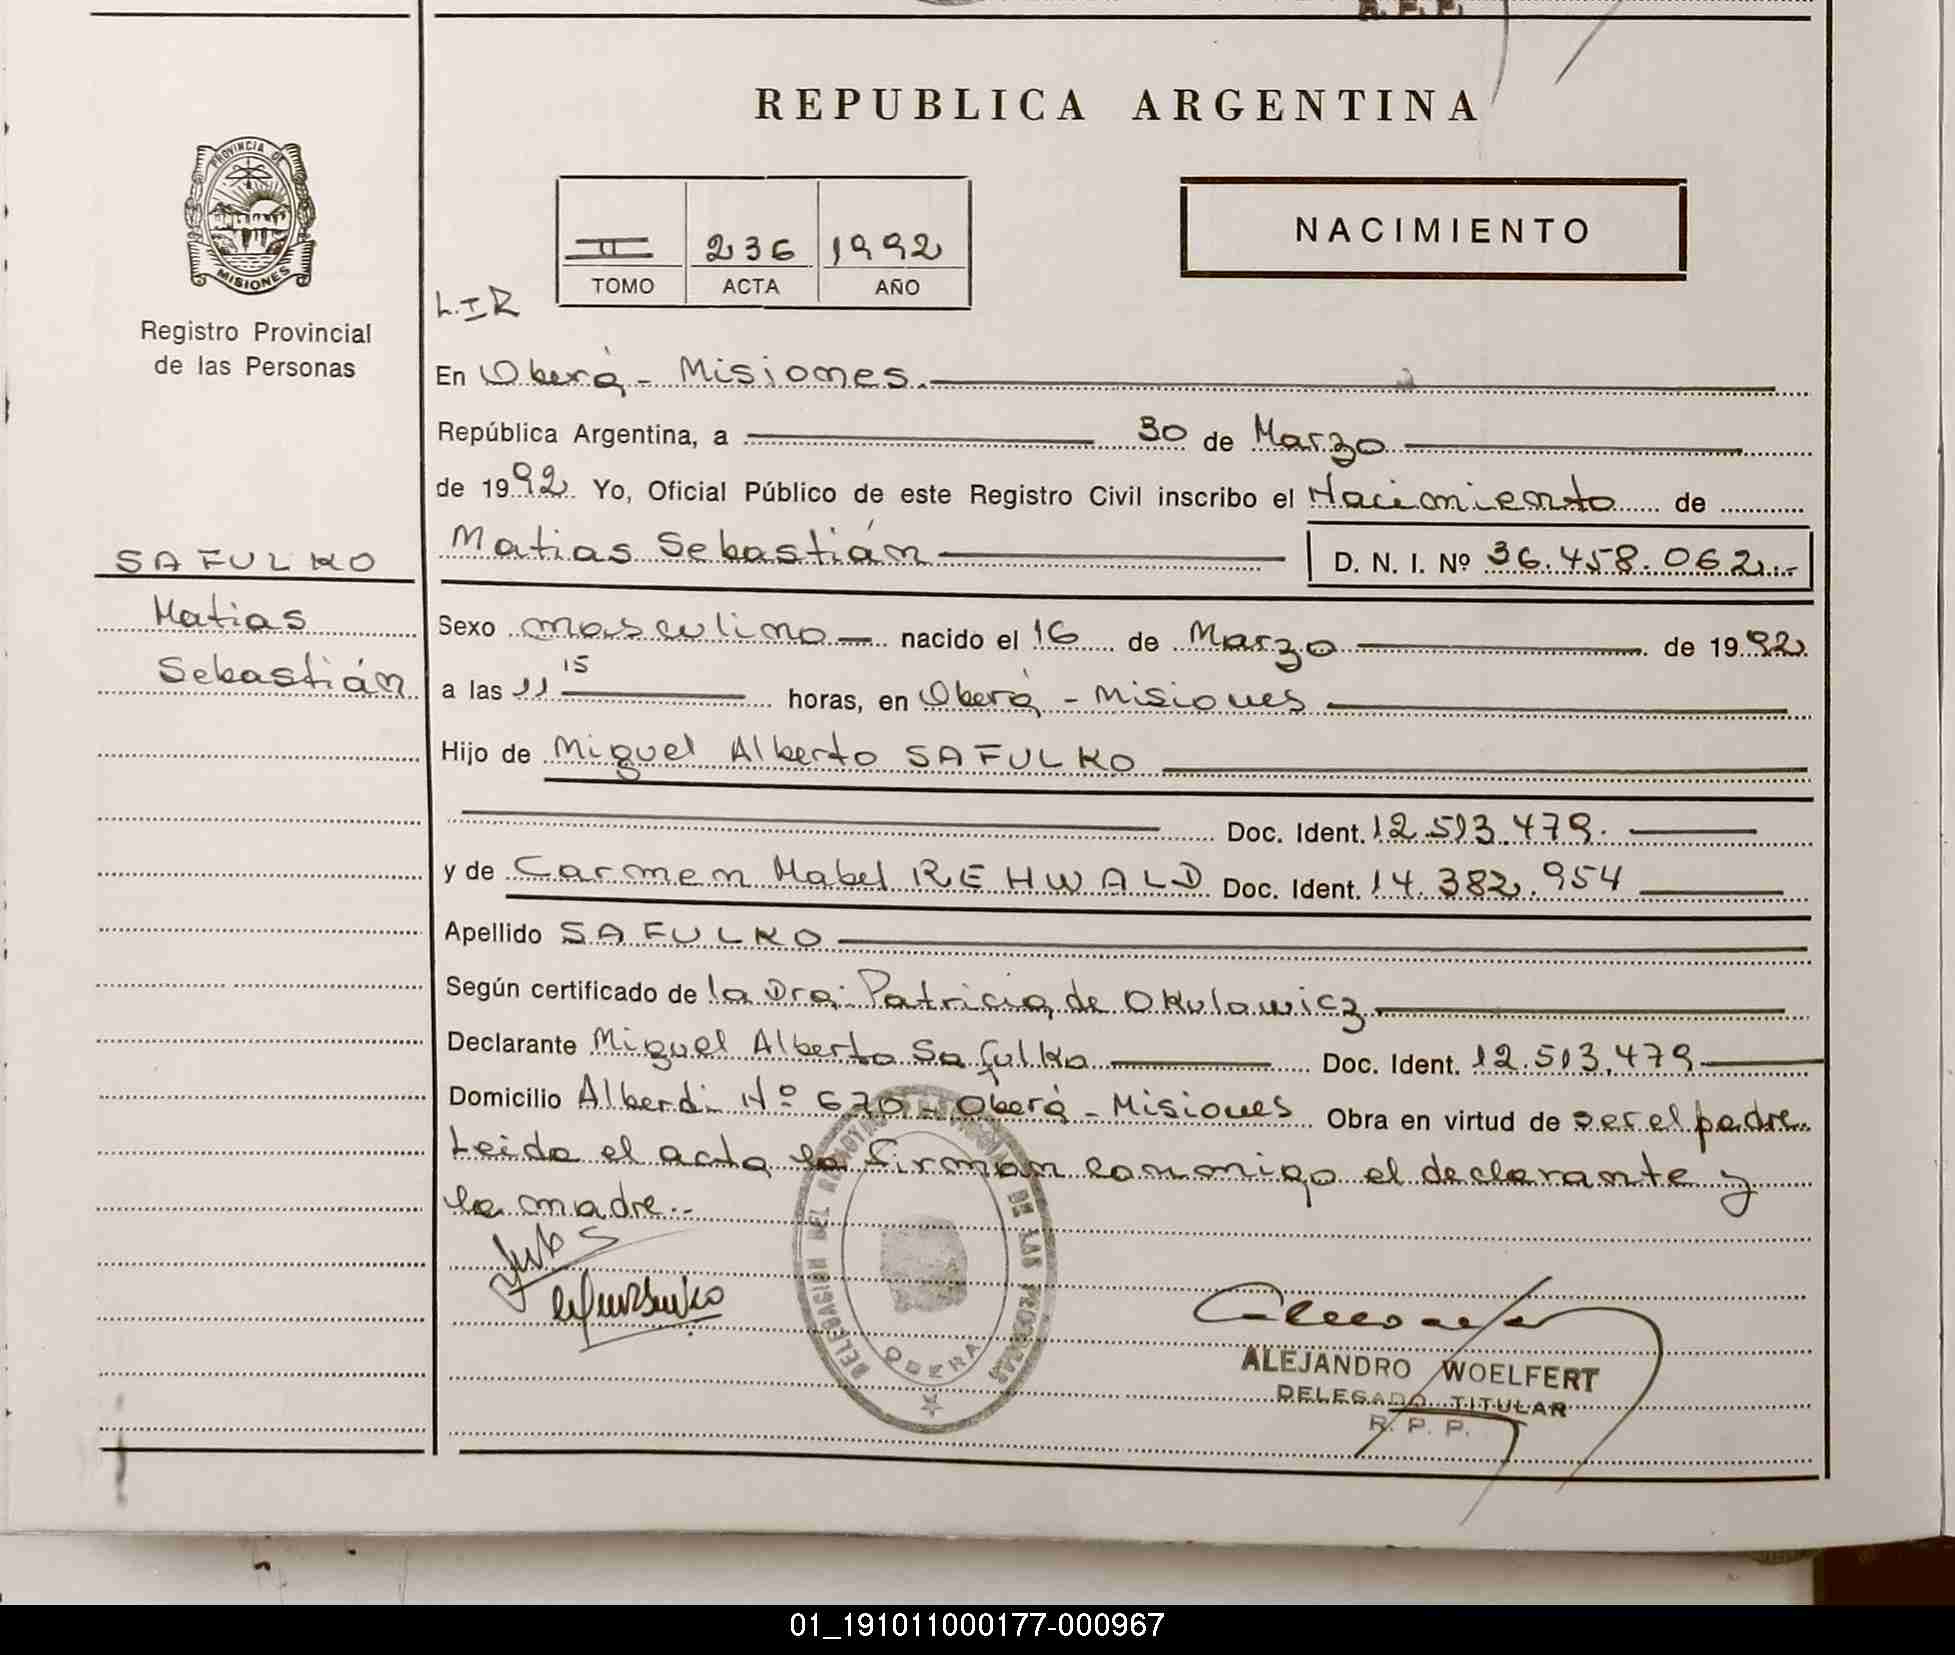 R. P. P.
REPUBLICA ARGENTINA
PROVINCIA DE
MISIONES
Registro Provincial
de las Personas
II 236 1992
TOMO ACTA AÑO
NACIMIENTO
L.I.R
En Oberá - Misiones.
República Argentina, a 30 de Marzo
de 1992. Yo, Oficial Público de este Registro Civil inscribo el Nacimiento de
Matias Sebastián D. N. I. Nº 36.458.062.-
SAFULKO
Matias
Sebastián
Sexo masculino nacido el 16 de Marzo de 1992
a las 11 15 horas, en Oberá - Misiones
Hijo de Miguel Alberto SAFULKO
Doc. Ident. 12.513.479.
y de Carmen Mabel REHWALD Doc. Ident. 14.382.954
Apellido SAFULKO
Según certificado de la Dra: Patricia de Okulowicz
Declarante Miguel Alberto Safulko Doc. Ident. 12.513.479
Domicilio Alberdi Nº 670 - Oberá - Misiones Obra en virtud de ser el padre.
Leida el acta la firman conmigo el declarante y
la madre.-
DELEGACION DEL REGISTRO PROVINCIAL DE LAS PERSONAS
OBERA
ALEJANDRO WOELFERT
DELEGADO TITULAR
R. P. P.
01_191011000177-000967